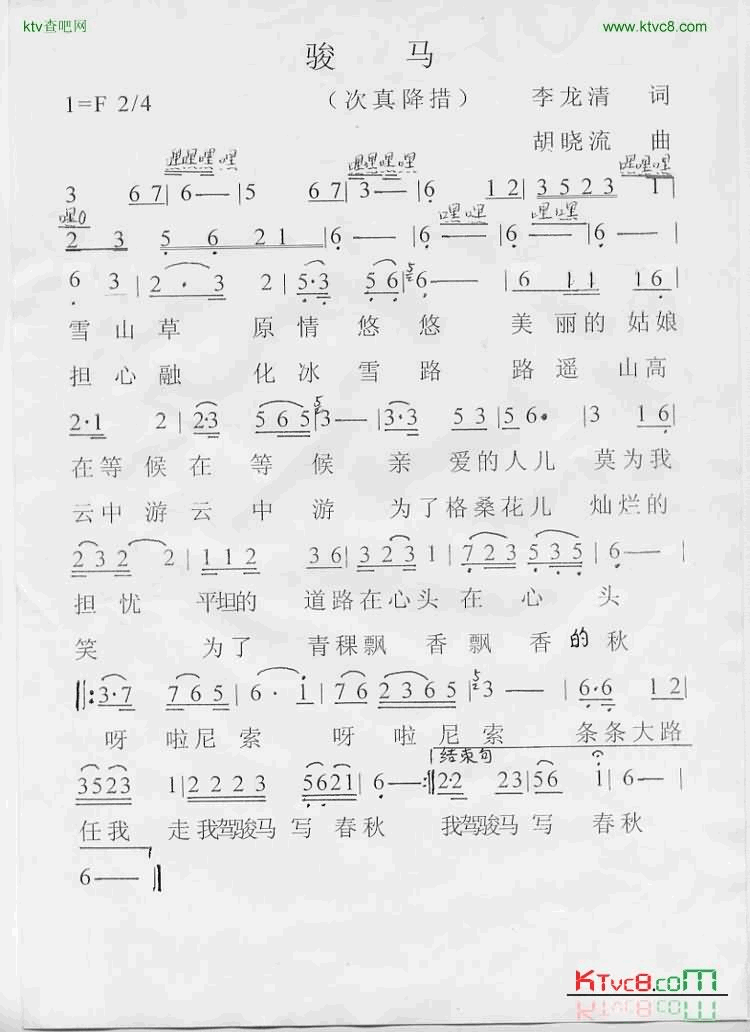 ktv查吧网 www.ktvc8.com
骏 马
1=F 2/4 （次真降措） 李龙清 词
胡晓流 曲
哩哩嘿嘿 哩哩嘿嘿 哩哩嘿
3 6 7| 6—— |5 6 7| 3—— |6 1 2| 3 5 2 3 1|
嘿0 嘿嘿 哩嘿
2 3 5 6 2 1 |6 —— |6 —— |6 —— |
6 3 |2 · 3 2 |5·3 5 6 |6—— |6 1 1 1 6 |
雪山草 原情悠悠 美丽的姑娘
担心融 化冰雪路 路遥山高
2·1 2 |2·3 5 6 5 |3—— |3·3 5 3 |5 6· |3 1 6|
在等候在等候 亲爱的人儿莫为我
云中游云中游 为了格桑花儿灿烂的
2 3 2 2 |1 1 2 3 6|3 2 3 1 |7 2 3 5 3 5 |6 —— |
担忧 平坦的道路在心头在心头
笑 为了青稞飘香飘香的秋
‖:3·7 7 6 5 |6 · i |7 6 2 3 6 5 |3 —— |6·6 1 2|
呀啦尼索 呀啦尼索 条条大路
结束句
3 5 2 3 1|2 2 2 3 5 6 2 1 |6 ——:‖2·2 2 3|5 6 i |6 — |
任我走我驾骏马写春秋 我驾骏马写春秋
6 —— ‖
KTvc8.com